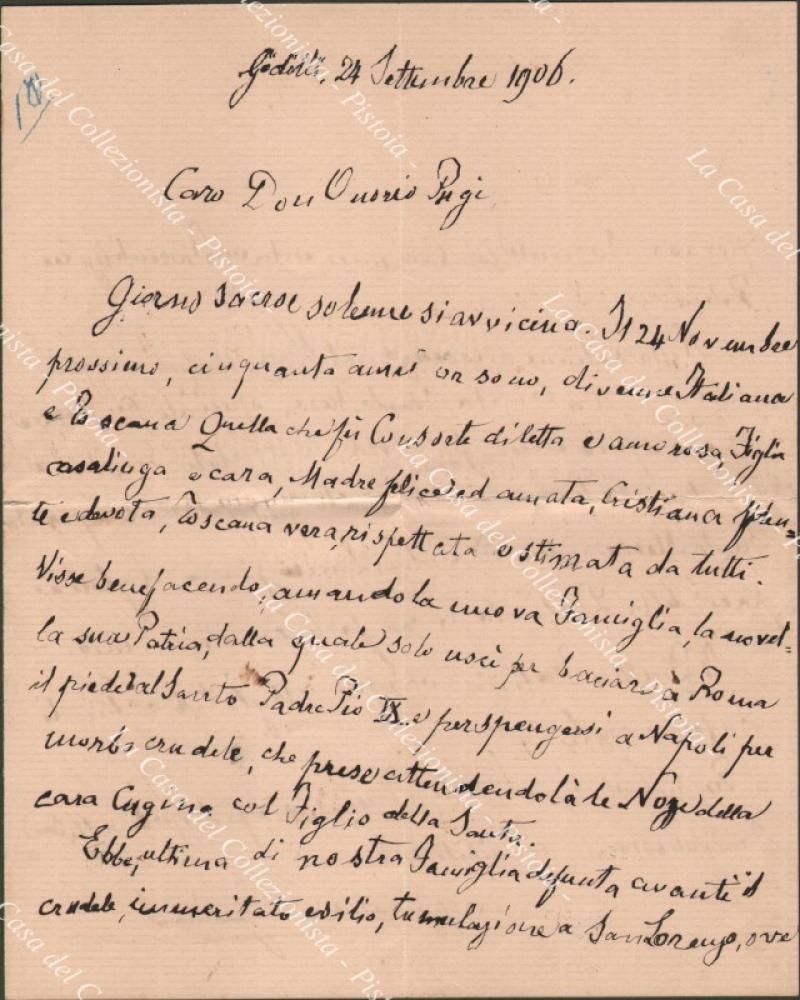 Gödöllö, 24 Settembre 1906.
18
Caro Don Onorio Pugi
Giorno sacro e solenne si avvicina. Il 24 Novembre
prossimo, cinquanta anni or sono, divenne Italiana
e Toscana Quella che fù Consorte diletta e amorosa, Figlia
casalinga e cara, Madre felice ed amata, Cristiana
te e devota, Toscana vera, rispettata e stimata da tutti.
Visse benefacendo, amando la nuova Famiglia, la novel=
la sua Patria, dalla quale solo uscì per baciare à Roma
il piede al Santo Padre Pio IX. e per spengersi a Napoli per
morbo crudele, che prese attendendo là le Nozze della
cara Cugina col Figlio della Santa.
Ebbe, ultima di nostra Famiglia defunta avanti il
crudele, immeritato esilio, tumulazione a San Lorenzo, ove
La Casa del Collezionista - Pistoia -